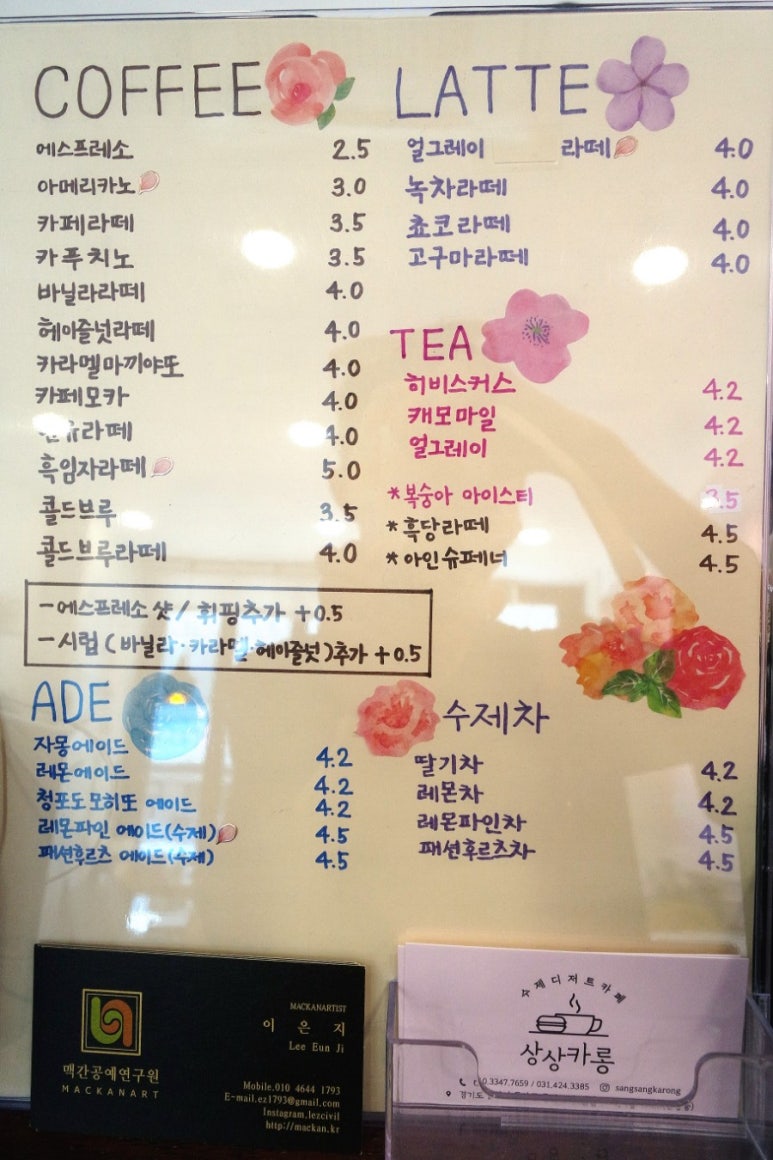 COFFEE
에스프레소 2.5
아메리카노 3.0
카페라떼 3.5
카푸치노 3.5
바닐라라떼 4.0
헤이즐넛라떼 4.0
카라멜마끼야또 4.0
카페모카 4.0
라떼 4.0
흑임자라떼 5.0
콜드브루 3.5
콜드브루라떼 4.0
-에스프레소 샷 / 휘핑추가 +0.5
-시럽 (바닐라·카라멜·헤이즐넛)추가 +0.5
LATTE
얼그레이 라떼 4.0
녹차라떼 4.0
쵸코라떼 4.0
고구마라떼 4.0
TEA
히비스커스 4.2
캐모마일 4.2
얼그레이 4.2
*복숭아 아이스티 3.5
*흑당라떼 4.5
*아인슈페너 4.5
ADE
자몽에이드 4.2
레몬에이드 4.2
청포도모히또 에이드 4.2
레몬파인 에이드(수제) 4.5
패션후르츠 에이드(수제) 4.5
수제차
딸기차 4.2
레몬차 4.2
레몬파인차 4.5
패션후르츠차 4.5
맥간공예연구원
MACKANART
MACKANARTIST
이 은 지
Lee Eun Ji
Mobile.010 4644 1793
E-mail.ez1793@gmail.com
Instagram.lezcivil
http://mackan.kr
수제디저트카페
상상카롱
0.3347.7659 / 031.424.3385 sangsangkarong
경기도